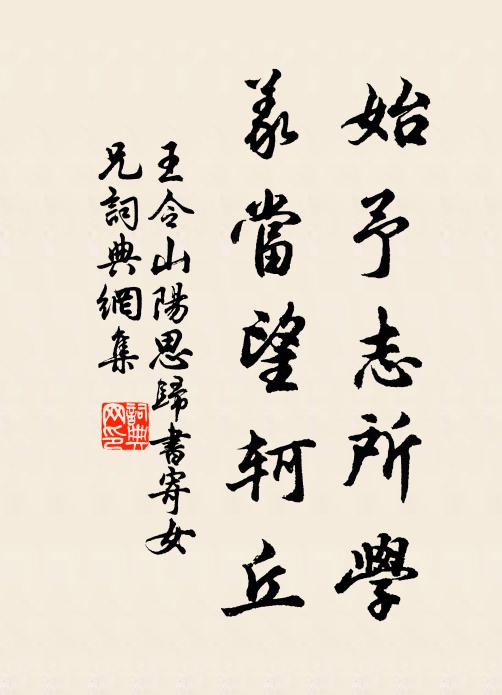 始予志所學
義當望軻丘
王令山陽思歸書寄女
兄詞典網集
詞典
网印